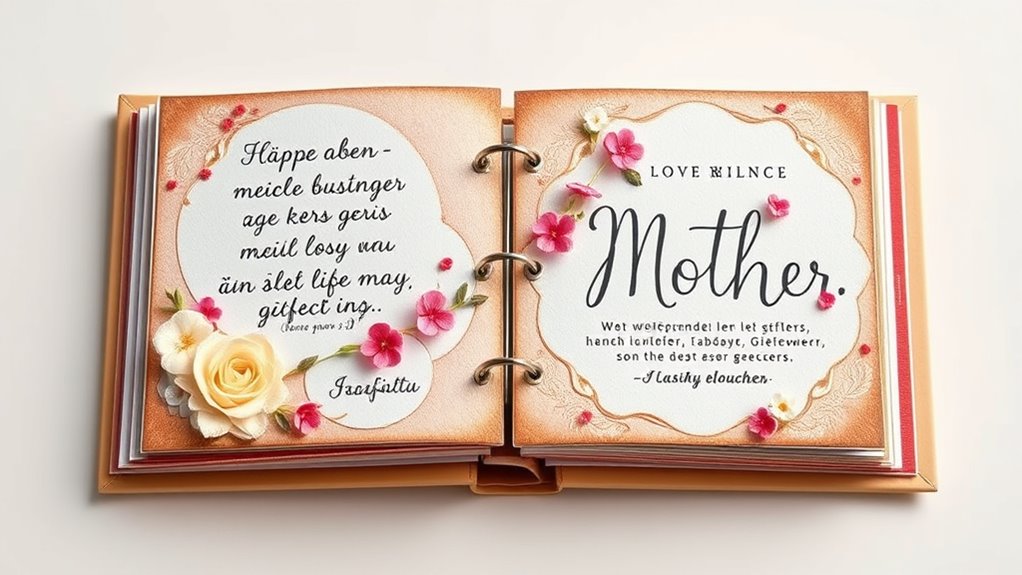 Häppe aben -
meicle bustnger
age kers geris
meiil losy wau
äin slet life may,
gitfect ing..
Isasfittu
LOVE WILNCE
Mother.
Wet welēprendel ler let gtflers,
hanch lonlefer, Eabdoye, Giefewerr,
son the dest esor geeccers.
-Jlasihy elouchen.